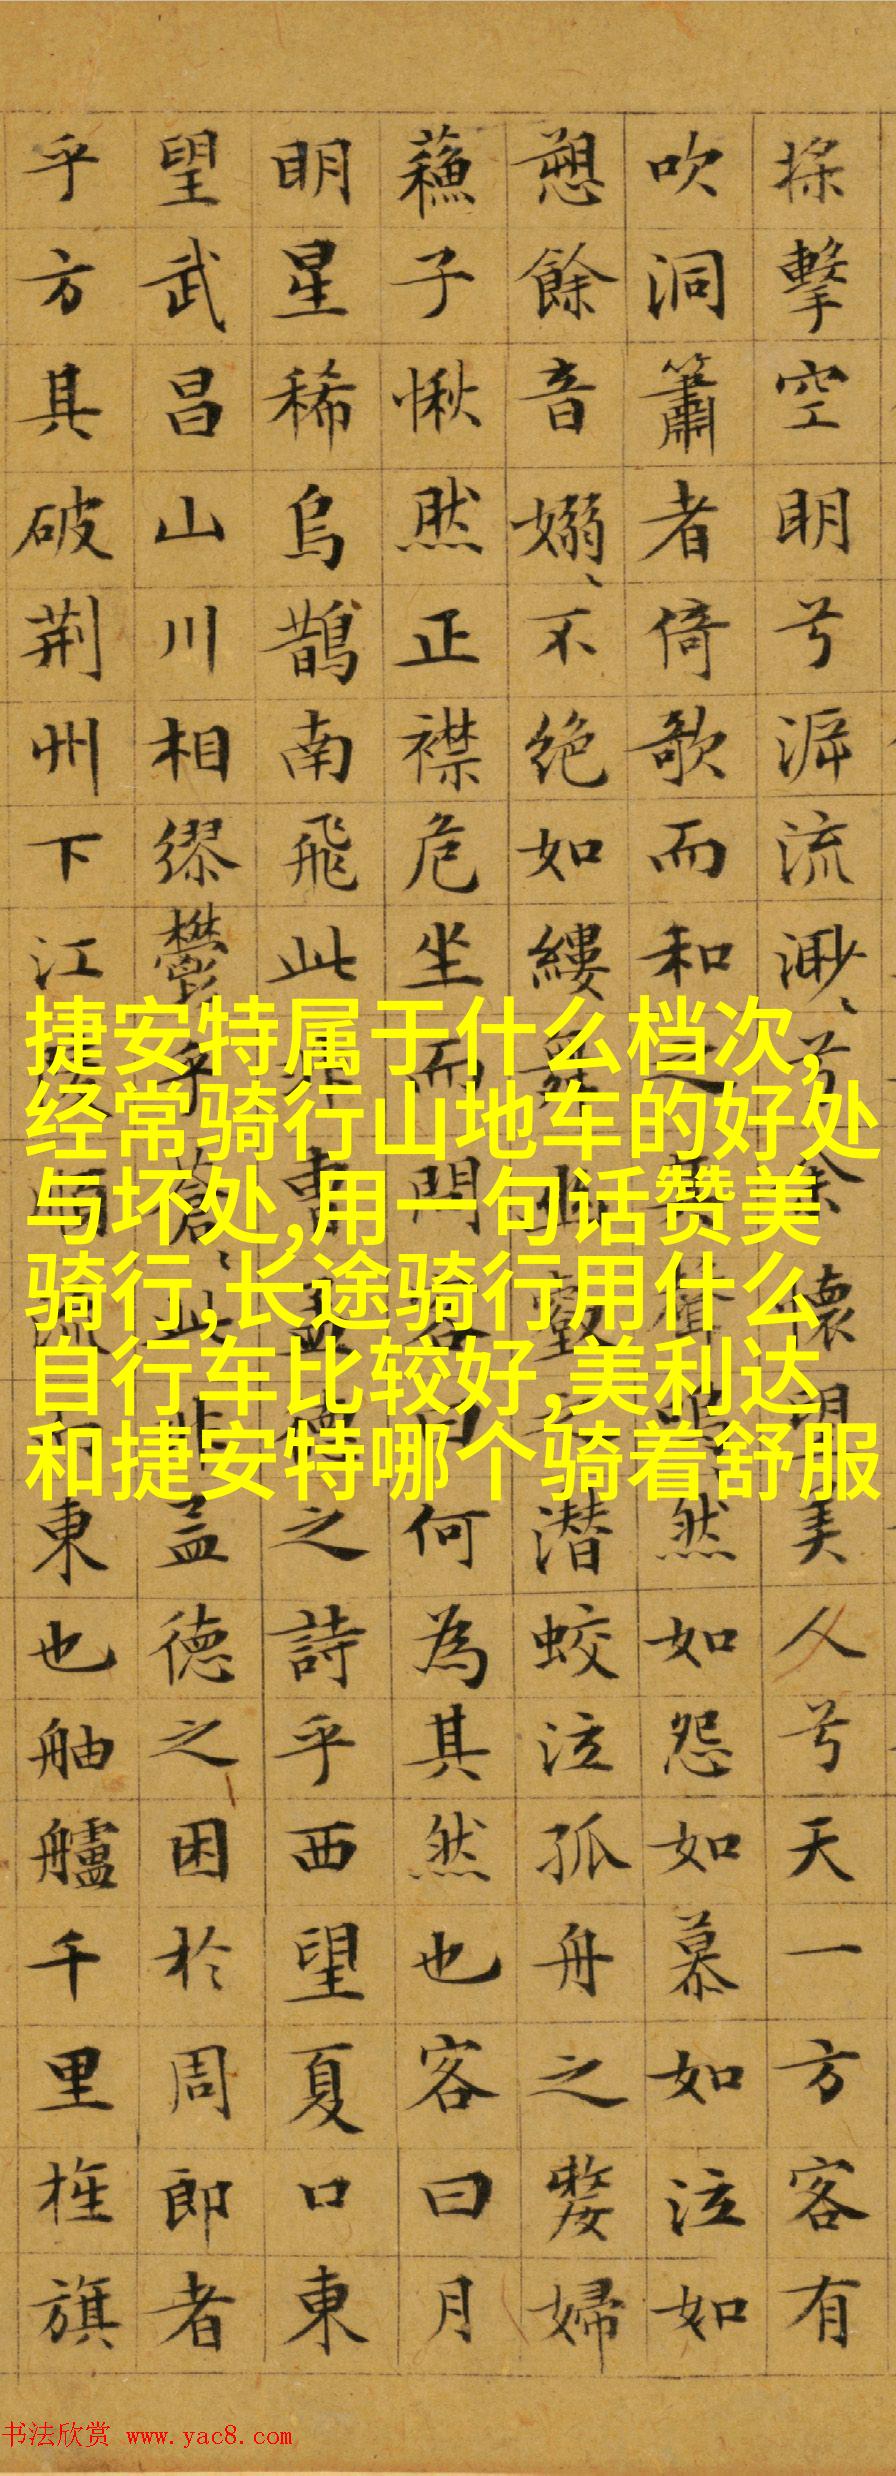 擊空明兮泝流渺、兮余懷望美人兮天一方客有
吹洞簫者倚歌而和之其聲嗚、然如怨如慕如泣如
愬餘音嫋、不絶如縷舞幽壑之潛蛟泣孤舟之嫠婦
蘓子愀然正襟危坐而問客曰何為其然也客曰月
明星稀烏鵲南飛此非曹孟德之詩乎西望夏口東
望武昌山川相繆鬱乎蒼、此非孟德之困於周郎者
乎方其破荊州下江陵順流而東也舳艫千里旌旗
捷安特属于什么档次,
经常骑行山地车的好处
与坏处,用一句话赞美
骑行,长途骑行用什么
自行车比较好,美利达
和捷安特哪个骑着舒服
书法欣赏 www.yac8.com